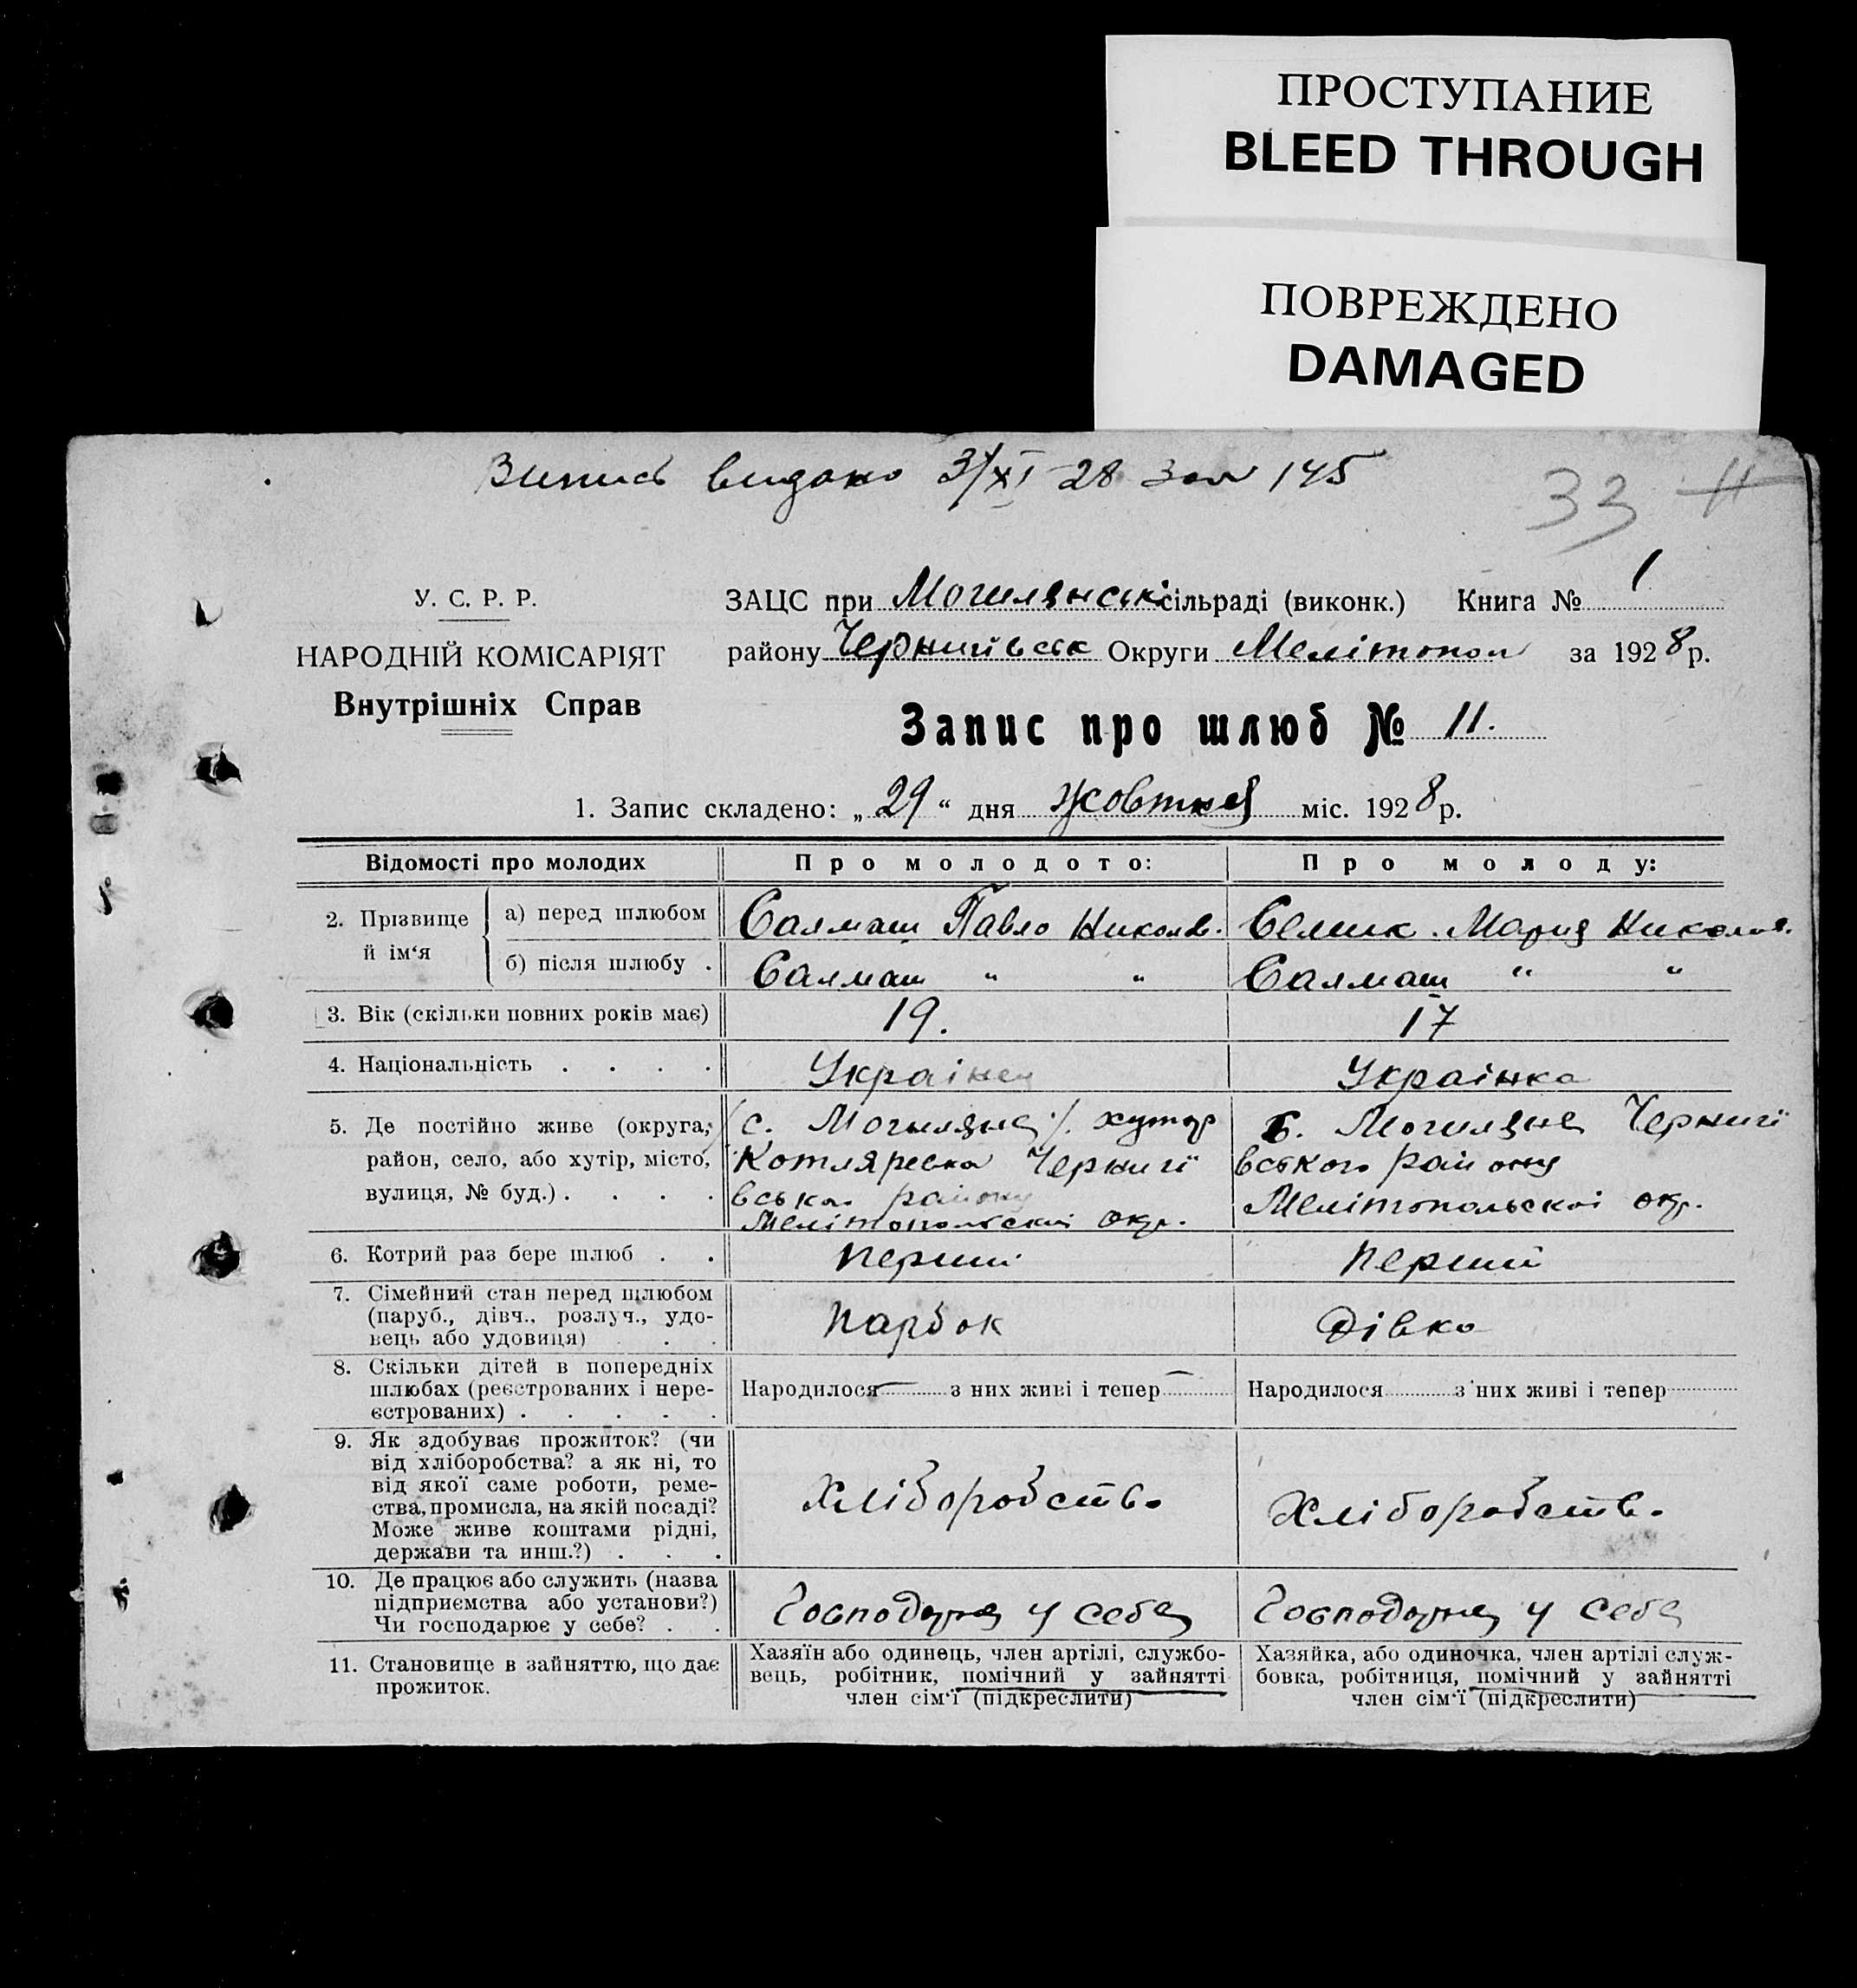 ПРОСТУПАНИЕ
BLEED THROUGH
ПОВРЕЖДЕНО
DAMAGED
Випись видано 3/XI 28 за № 145
33 11
У. С. Р. Р.
НАРОДНІЙ КОМІСАРІЯТ
Внутрішніх Справ
ЗАЦС при Могилянськ сільраді (виконк.) Книга № 1
району Чернигівськ Округи Мелітопол за 1928 р.
Запис про шлюб № 11.
1. Запис складено: „29“ дня жовтня міс. 1928 р.
Відомості про молодих
Про молодого:
Про молоду:
2. Прізвище й ім‘я
а) перед шлюбом
Салмаш Павло Никол.
Селик Мария Никола.
б) після шлюбу .
Салмаш „ „
Салмаш „ „
3. Вік (скільки повних років має)
19.
17
4. Національність . . . .
Українец
Українка
5. Де постійно живе (округа,
район, село, або хутір, місто,
вулиця, № буд.) . . . .
/с. Могиляне/. хутор
Котляревка Чернигі
вськаo району
Мелітопольскоі окр.
с. Могиляне Чернигі
вського району
Мелітопольскоі окр.
6. Котрий раз бере шлюб . .
перший
перший
7. Сімейний стан перед шлюбом
(паруб., дівч., розлуч., удо-
вець або удовиця) . .
парбок
дівка
8. Скільки дітей в попередніх
шлюбах (реєстрованих і нере-
єстрованих) . . . . .
Народилося — з них живі і тепер —
Народилося з них живі і тепер
9. Як здобуває прожиток? (чи
від хліборобства? а як ні, то
від якої саме роботи, реме-
ства, промисла, на якій посаді?
Може живе коштами рідні,
держави та инш.?) . . .
Хліборобство
Хліборобство
10. Де працює або служить (назва
підприємства або установи?)
Чи господарює у себе? . .
Господарює у себе
Господарює у себе
11. Становище в зайняттю, що дає
прожиток.
Хазяїн або одинець, член артілі, службо-
вець, робітник, помічний у зайнятті
член сім‘ї (підкреслити)
Хазяйка, або одиночка, член артілі служ-
бовка, робітниця, помічний у зайнятті
член сім‘ї (підкреслити)